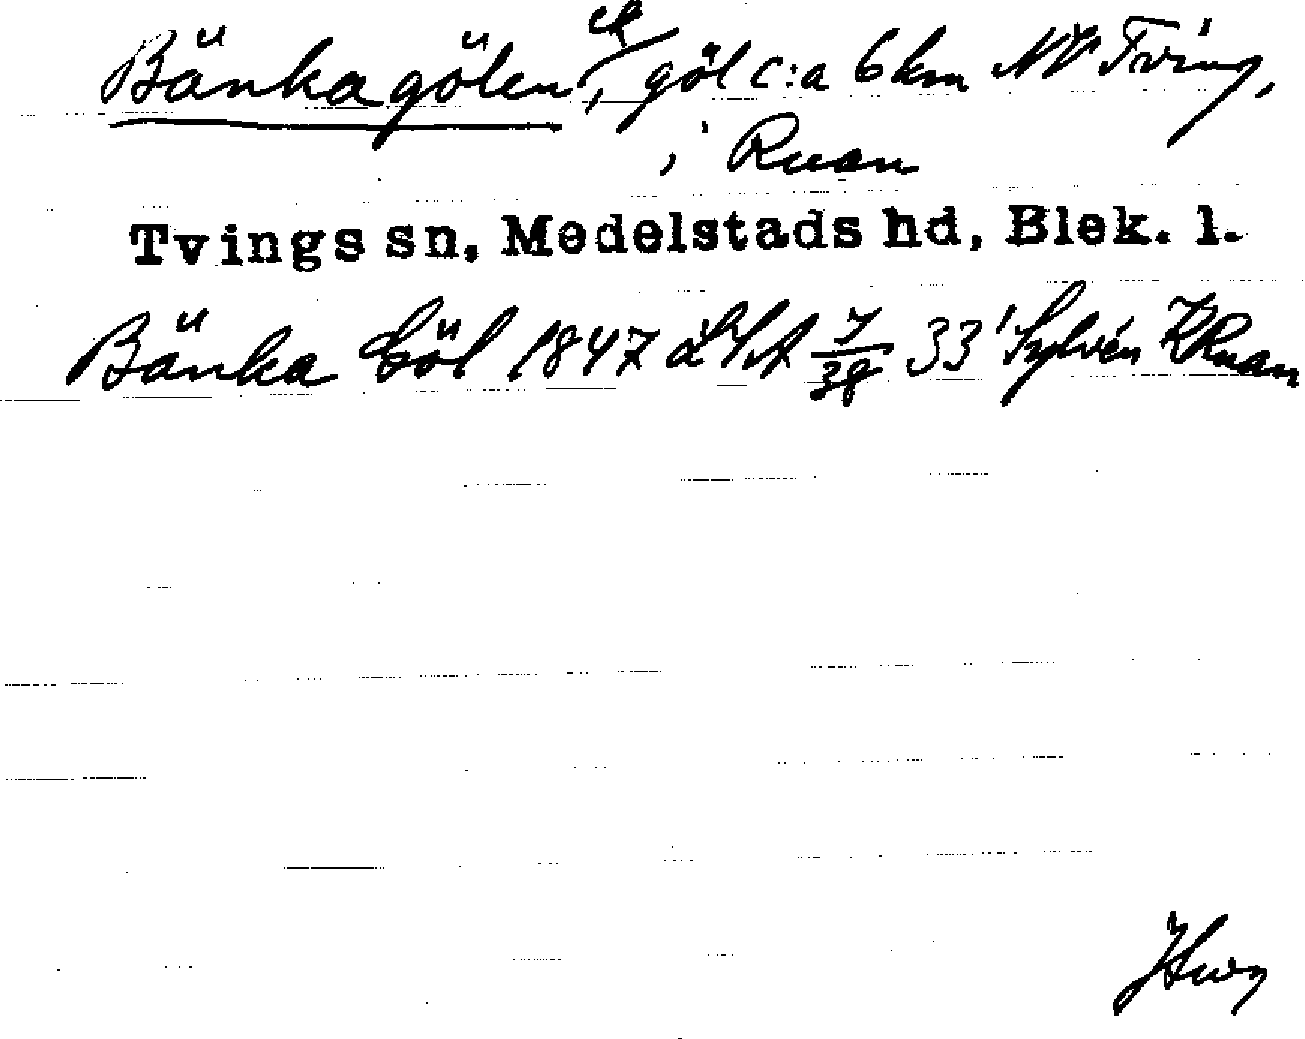 Bänkagölen, göl c:a 6 km NV Tving,
i Ruan
Tvings sn, Medelstads hd, Blek. l.
Bänka Göl 1847 LSA 7/38 33 Sylvén KRuan